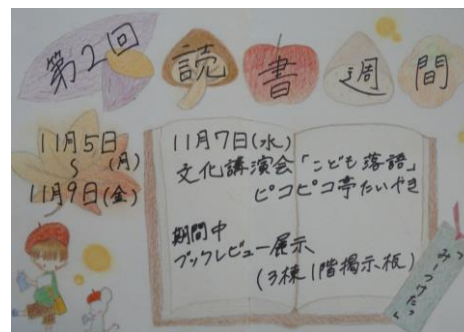 第2回 読書週間
11月5日(月)
〜
11月9日(金)
11月7日(水)
文化講演会「こども落語」
ピコピコ亭たいやき
期間中
ブックレビュー展示
(3棟1階掲示板)
みーつけた